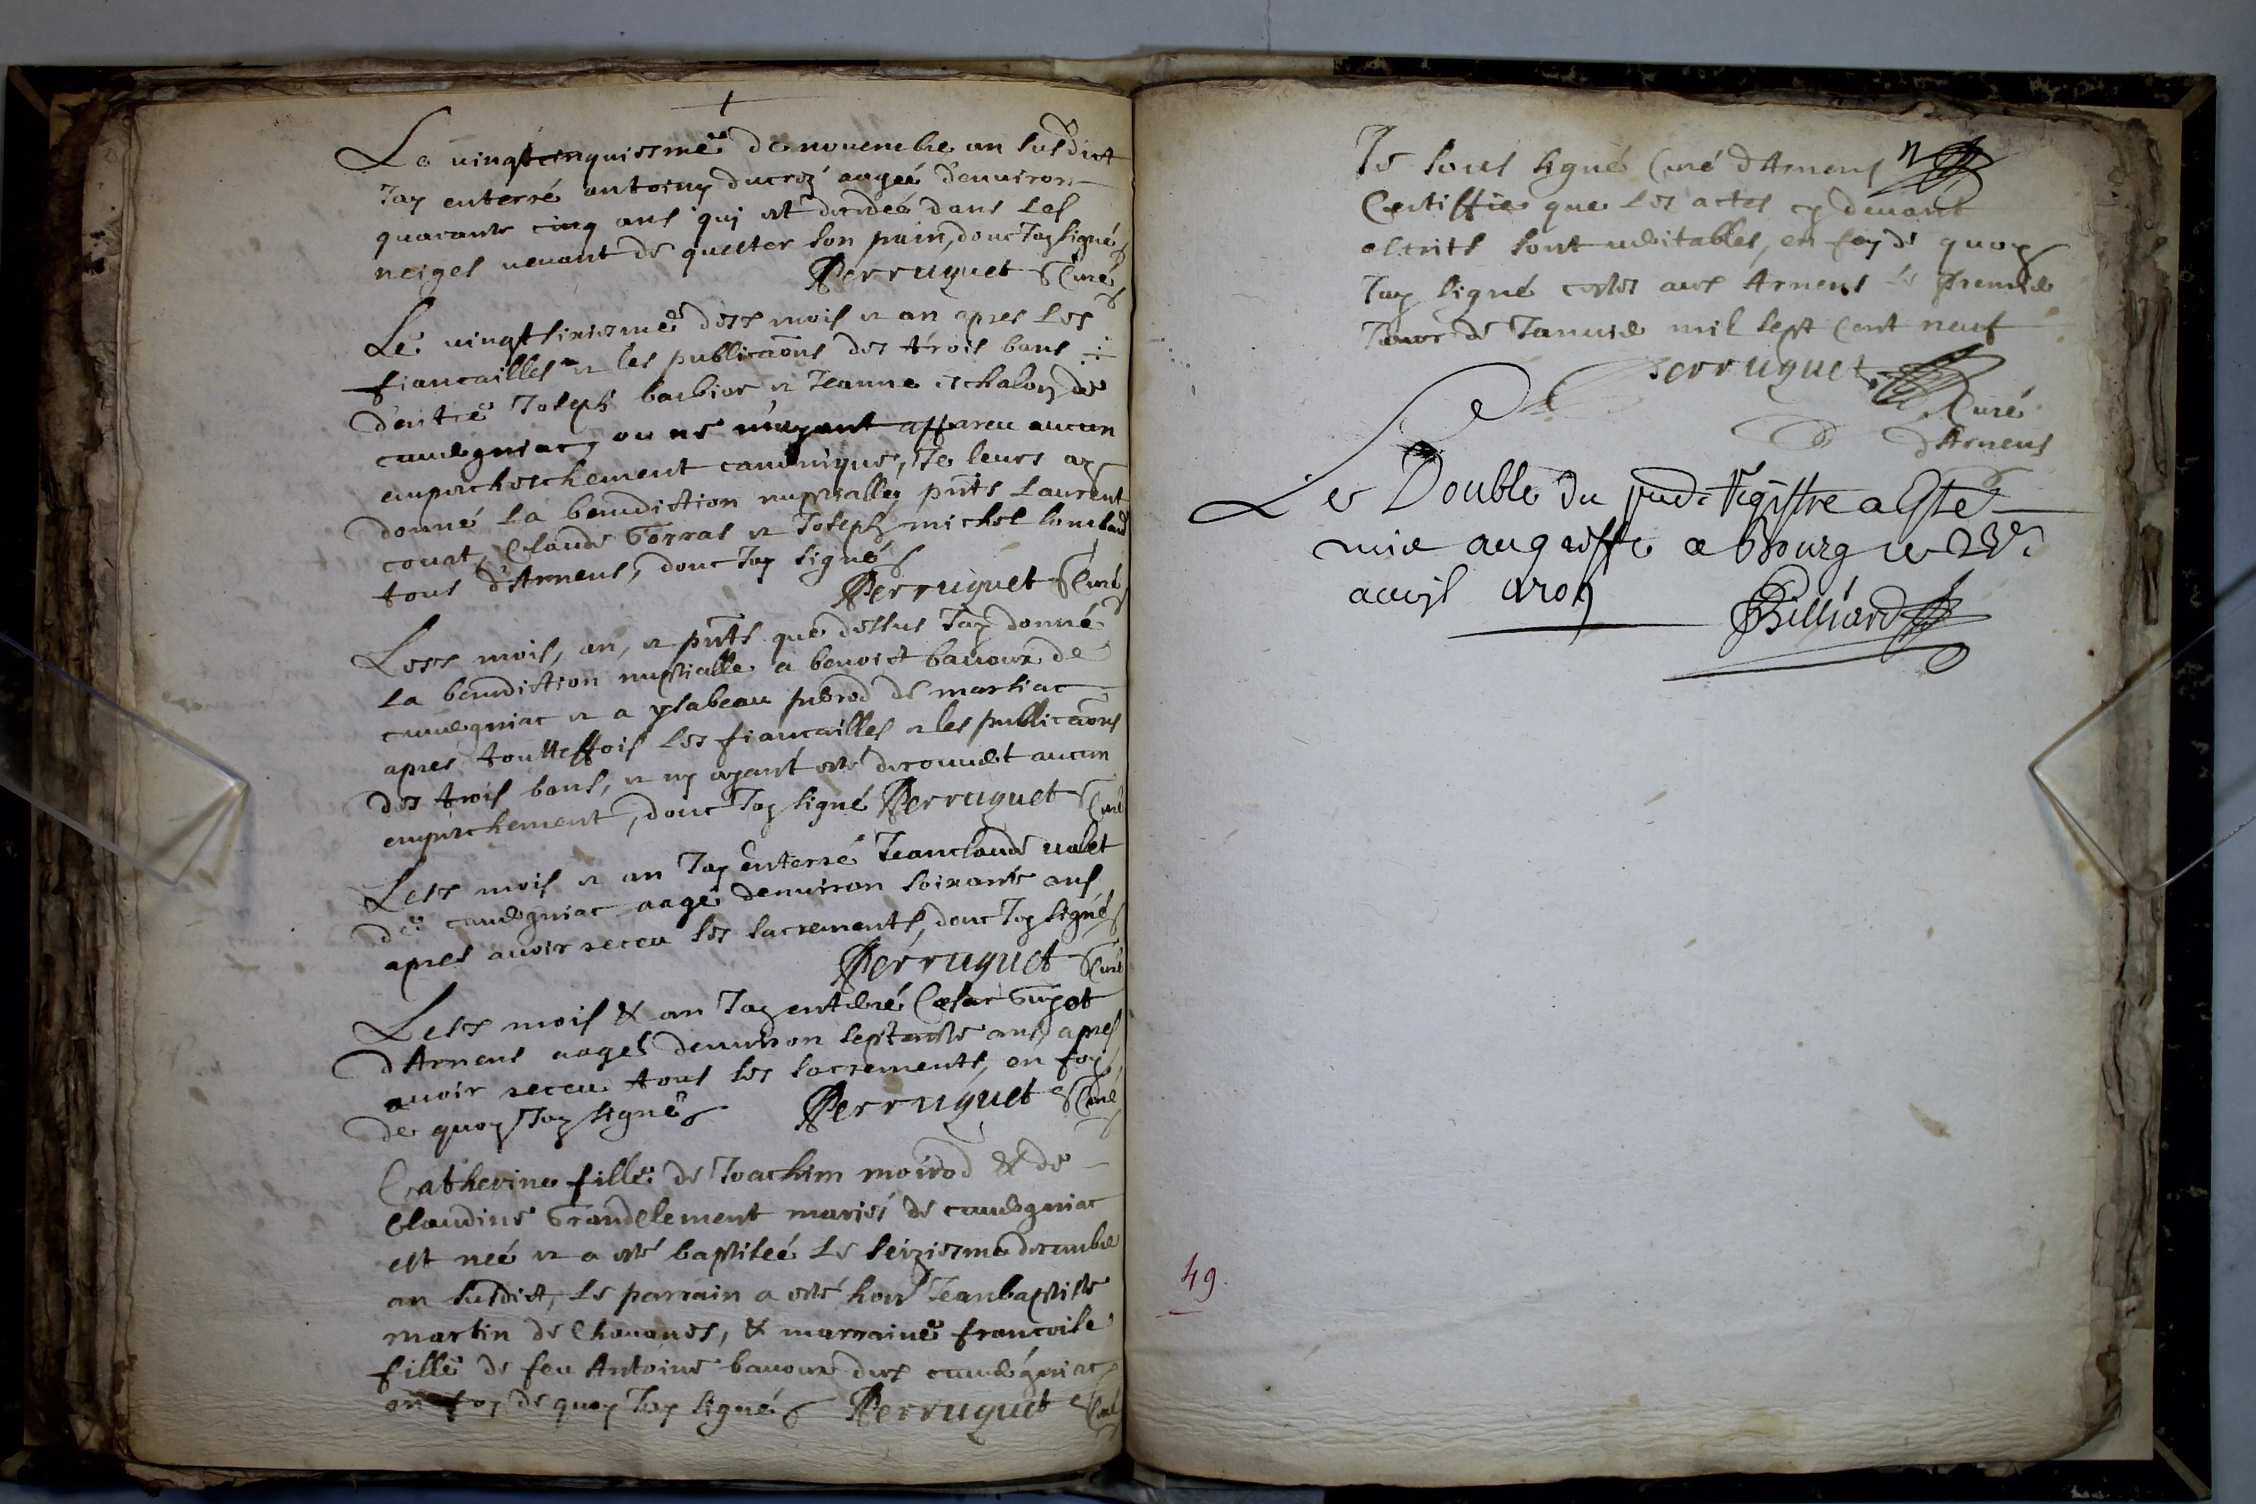 Le vingtcinquiesme de novembre an susdict
Jay enterré antoiny ducroz aageé denviron
quarante cinq ans qui est decedeé dans les
neiges venant de quester son pain, donc Jay signé
Perruquet Curé
Le vingtsixiesme desx mois et an apres les
fiancailles et les publicaōns des trois bans
dentre Joseph barbier et Jeanne eschalon de
cauvegniac, ou ne n'ayant appareu aucun
empescheschement canonique, Je leurs ay
donné la benediction nuptialle, pnts Laurent
couat, Claude Gorras et Joseph michel lombard
tous d'Arnens, donc Jay signé
Perruquet Curé
Lesx mois, an, et pnts que dessus Jay donné
la benediction nuptialle a benoist bavoux de
cauvegniac et a ysabeau pierod de marsiac
apres touttesfois les fiancailles et les publicaōns
des trois bans, et ny ayant esté descouvert aucun
empeschement, donc Jay signé Perruquet Curé
Lesx mois et an Jay enterré Jeanclaude valet
de cauvegniac aagé denviron soixante ans
apres avoir receu les sacrements, donc Jay signé
Perruquet Curé
Lesx mois & an Jay enterré Cesar Guyot
d'Arnens aagé denviron septante ans apres
avoir receu tous les sacrements, en foy
de quoy Jay signé Perruquet Curé
Catherine fille de Joachim moirod & de
Claudine Grandclement mariés de cauvegniac
est neé et a esté baptiseé le seiziesme decembre
an susdict, le parrain a esté hon Jeanbaptiste
martin de Chavanes, & marraine francoise
fille de feu Antoine bavoux dux cauvegniac
en foy de quoy Jay signé Perruquet Curé
Je sous signé Curé d'Arnens
Certiffie que les actes cy devant
escrits sont veritables, en foy de quoy
Jay signé cestes aux Arnens le premier
Jour de Janvier mil sept cent neuf
Perruquet
Curé
d'Arnens
Le Double du pnt Registre a Esté
mis au greffe a Bourg le
avril 1709
Billiard
49.